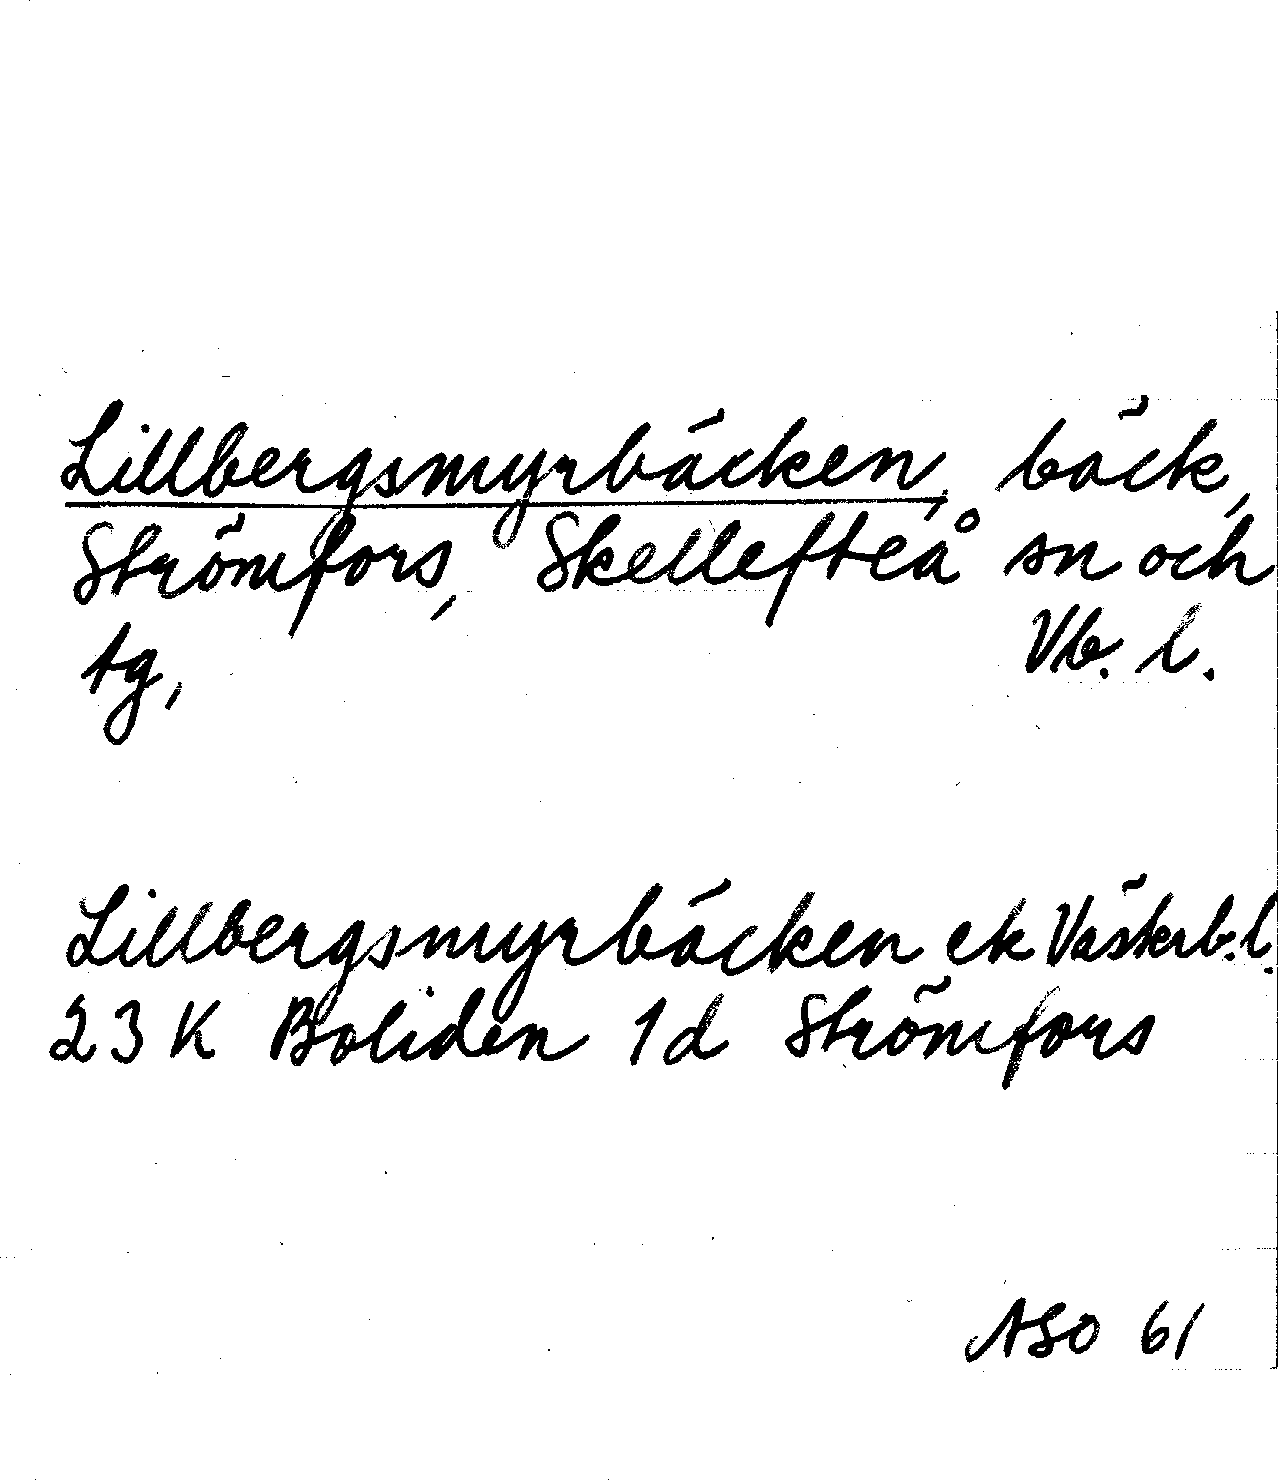 Lillbergsmyrbäcken, bäck,
Strömfors, Skellefteå sn och
tg, Vb. l.
Lillbergsmyrbäcken ek Västerb. l.
23 K Boliden 1d Strömfors
ASO 61